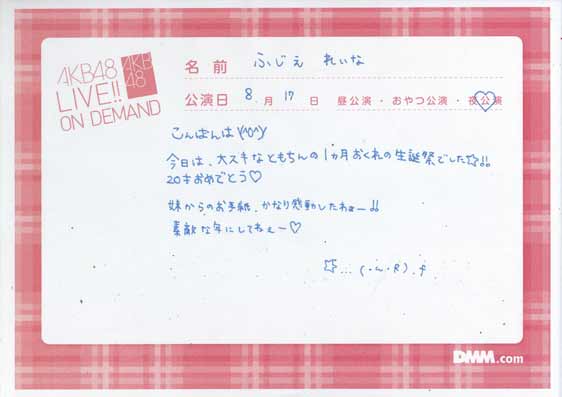 AKB48
LIVE!!
ON DEMAND
AKB
48
名前 ふじえ れいな
公演日 8月17日 昼公演・おやつ公演・夜公演
こんばんは\(^o^)/
今日は、大スキなともちんの1ヵ月おくれの生誕祭でした☆!!
20才おめでとう♡
妹からのお手紙、かなり感動したねぇー!!
素敵な年にしてねぇー♡
☆...(・ん・R).f
DMM.com